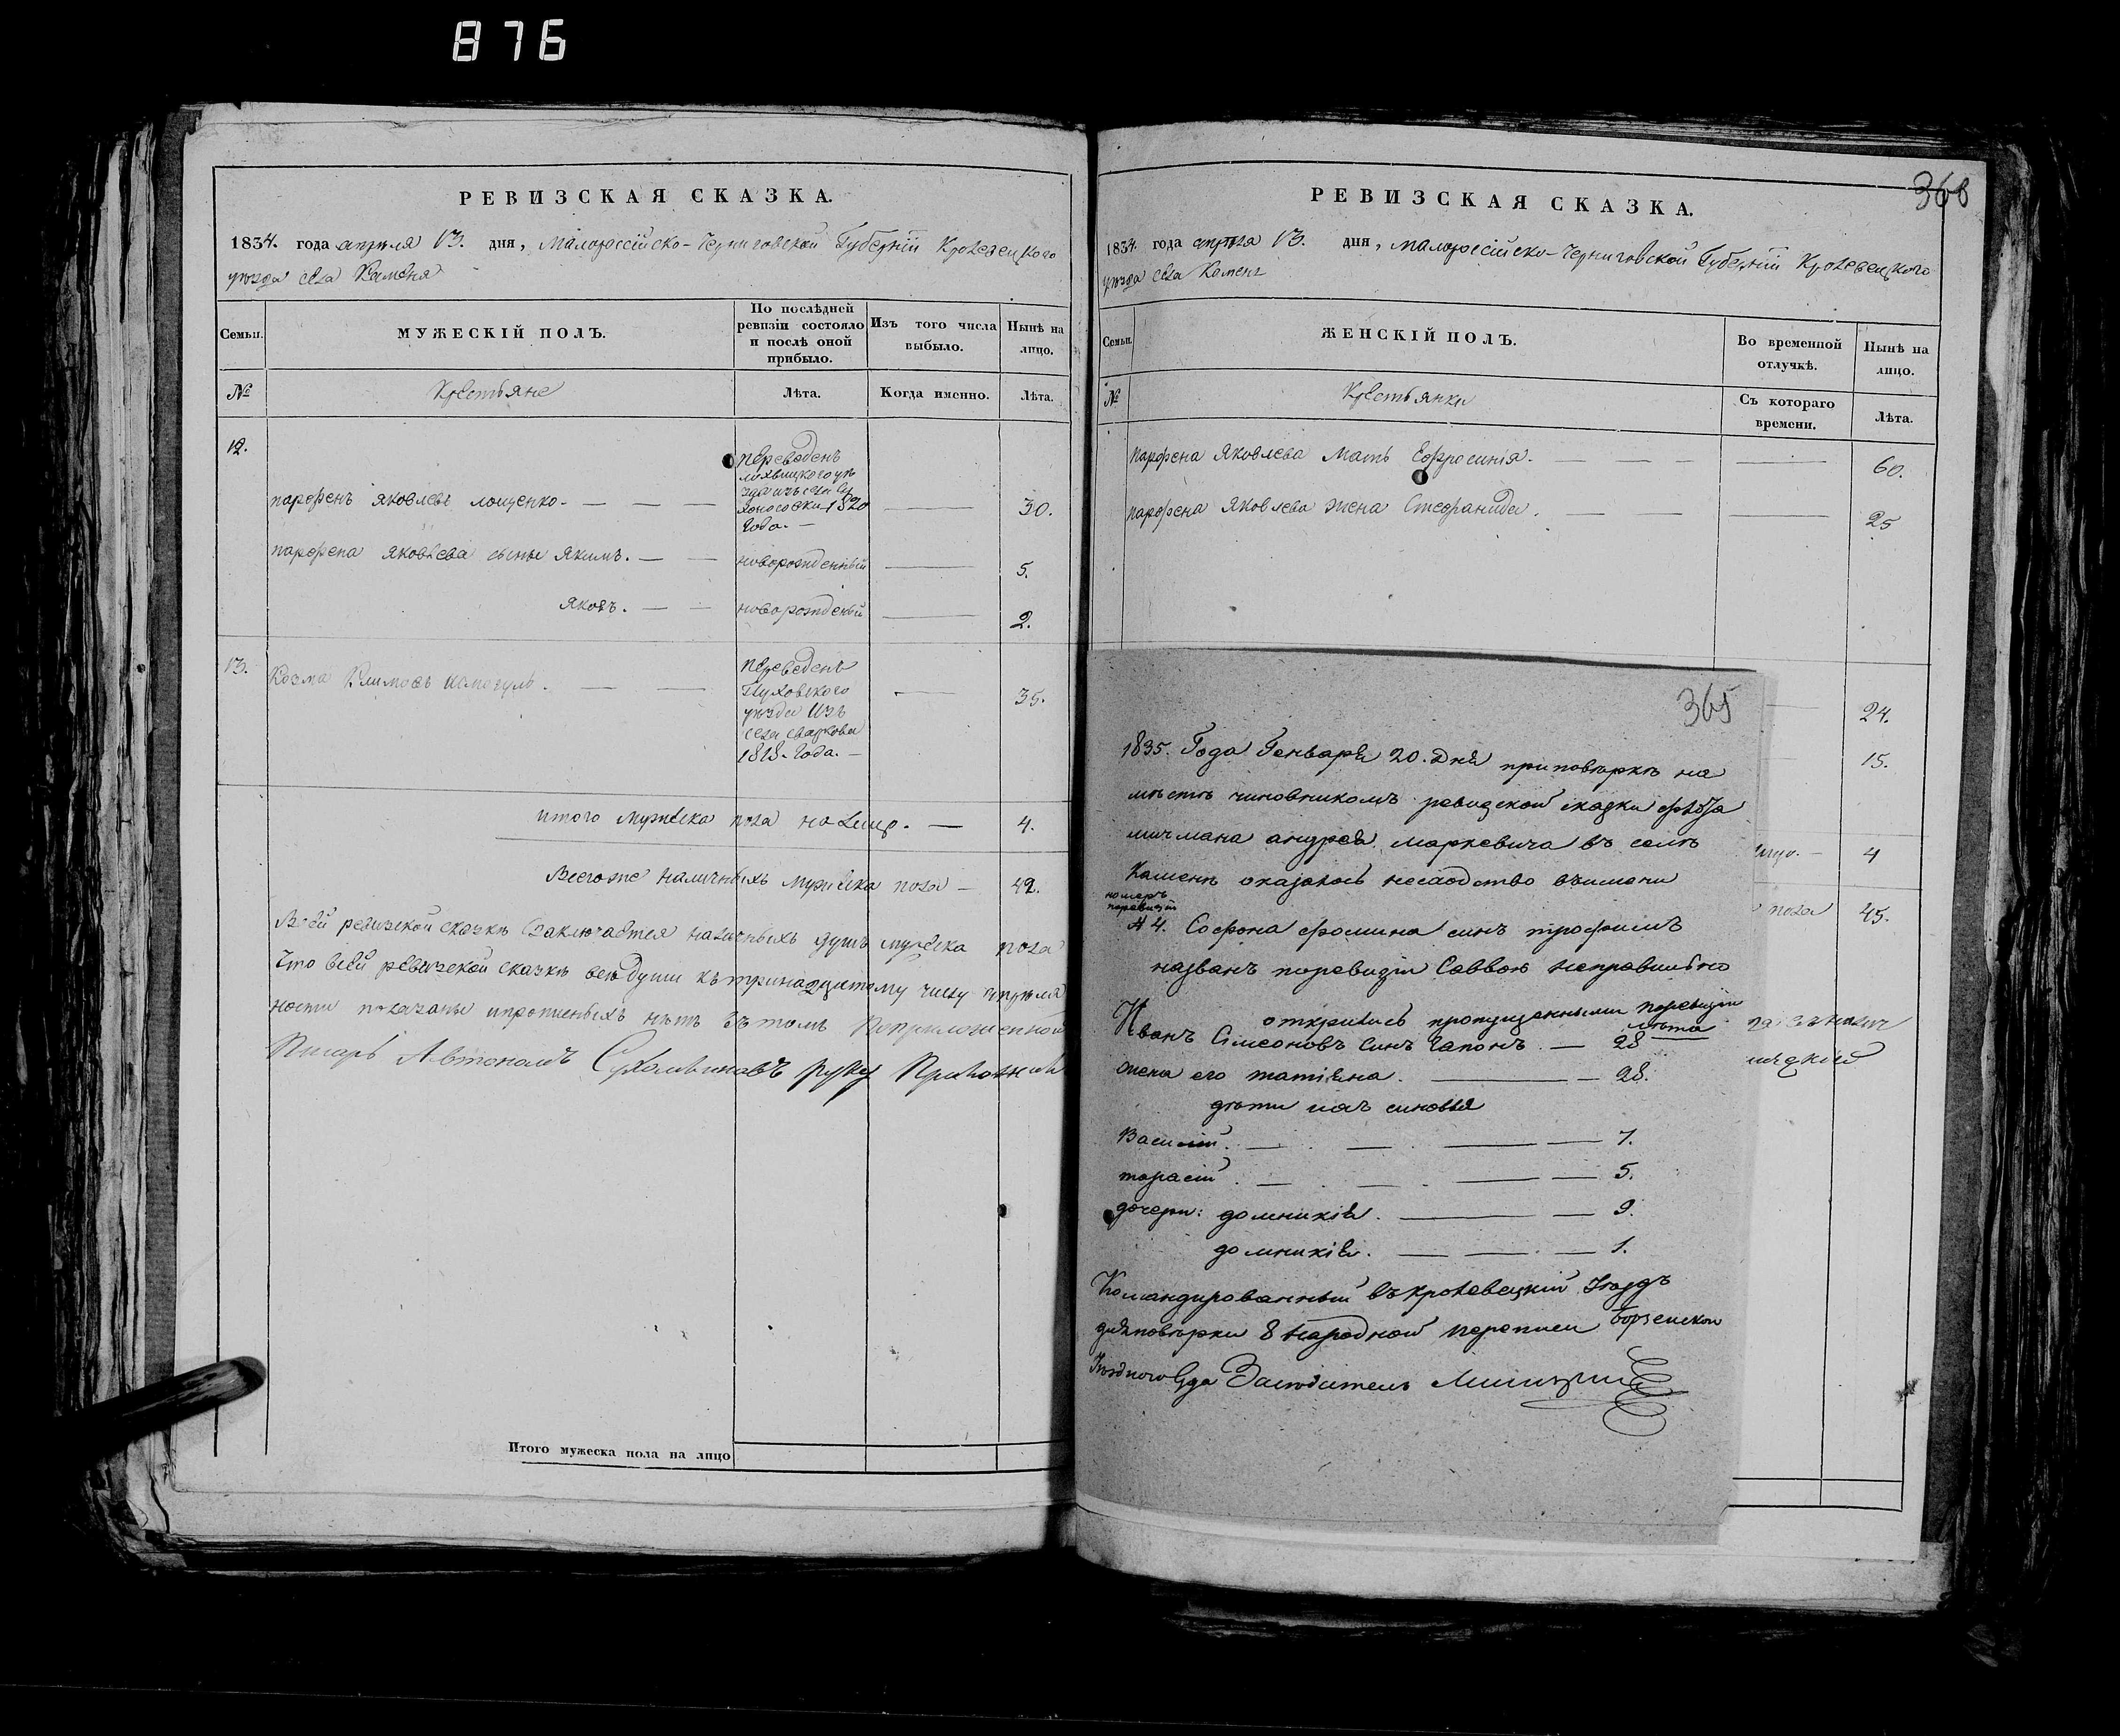 876
РЕВИЗСКАЯ СКАЗКА.
1834. года апреля 13. дня, Малороссійско-Черниговской Губерніи Кролевецкого
уезда села Каменя
Семьи.
МУЖЕСКІЙ ПОЛЪ.
По послѣдней
ревизіи состояло
и послѣ оной
прибыло.
Изъ того числа
выбыло.
Нынѣ на
лицо.
№
Крестьяне
Лѣта.
Когда именно.
Лѣта.
12.
переведенъ
парфенъ яковлевъ лощенко.
1820
года.
30.
парфена яковлева сыны якимъ.
новорожденный
5.
яковъ.
новорожденый
2.
13.
Козма Климовъ
переведенъ
Глуховского
уезда изъ
села сваркова
1818. года.
35.
итого мужеска пола на лицо.
4.
Всегоже наличныхъ мужеска пола
42.
Всей ревизской сказке заключается наличныхъ душъ мужеска пола
Что всей ревизской сказке все души къ тринадцатому числу апреля
ности показаны и прописныхъ нетъ въ томъ
Писарь Автономъ руку Приложилъ
Итого мужеска пола на лицо
366
РЕВИЗСКАЯ СКАЗКА.
1834. года апреля 13. дня, малороссійско-Черниговской Губерніи Кролевецкого
уезда села Каменя
Семьи.
ЖЕНСКІЙ ПОЛЪ.
Во временной
отлучкѣ.
Нынѣ на
лицо.
№
Крестьянки
Съ котораго
времени.
Лѣта.
парфена Яковлева мать Ефросинія.
60.
парфена Яковлева жена Стефанида.
25
24.
15.
4
пола
45.
365
1835. Года Генваря 20. Дня при поверке на
месте чиновникомъ ревизской сказки
мичмана андрея маркевича въ селе
Камене оказалось несходство въ имени
номеръ
поревизіи
№ 4. Софона фомина синъ трофимъ
названъ поревизіи Саввою неправильно
открились пропущенными поревизіи
лета
Иванъ Сімеоновъ синъ Гапонъ. — 28
жена его татіяна. — 28.
дети ихъ синовья
Василій. — 7.
тарасій. — 5.
дочери: домникія. — 9.
домникія. — 1.
Командированный въ кролевецкій уездъ
для поверки 8 народной переписи борзенской
Уездного Суда Заседатель